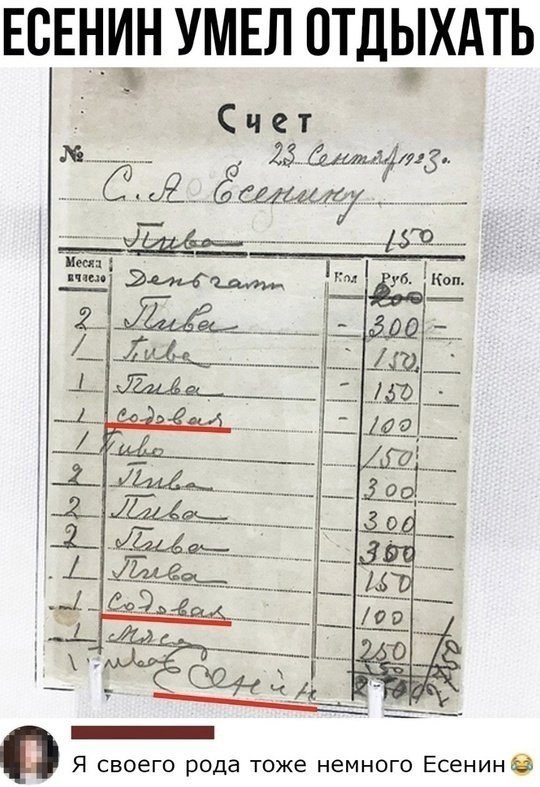 ЕСЕНИН УМЕЛ ОТДЫХАТЬ
Счет
№ 23 Сентяб 1923.
С. А Есенину
Пива 150
Месяц и число Деньгами Кол Руб. Коп.
200
2 Пива - 300 -
1 Пива 150
1 Пива - 150
1 Содовая - 100
1 Пиво 150
2 Пива 300
2 Пива 300
2 Пива 300
1 Пива 150
1 Содовая 100
1 Мясо 250
1 пива 150
Есенин
Я своего рода тоже немного Есенин😂